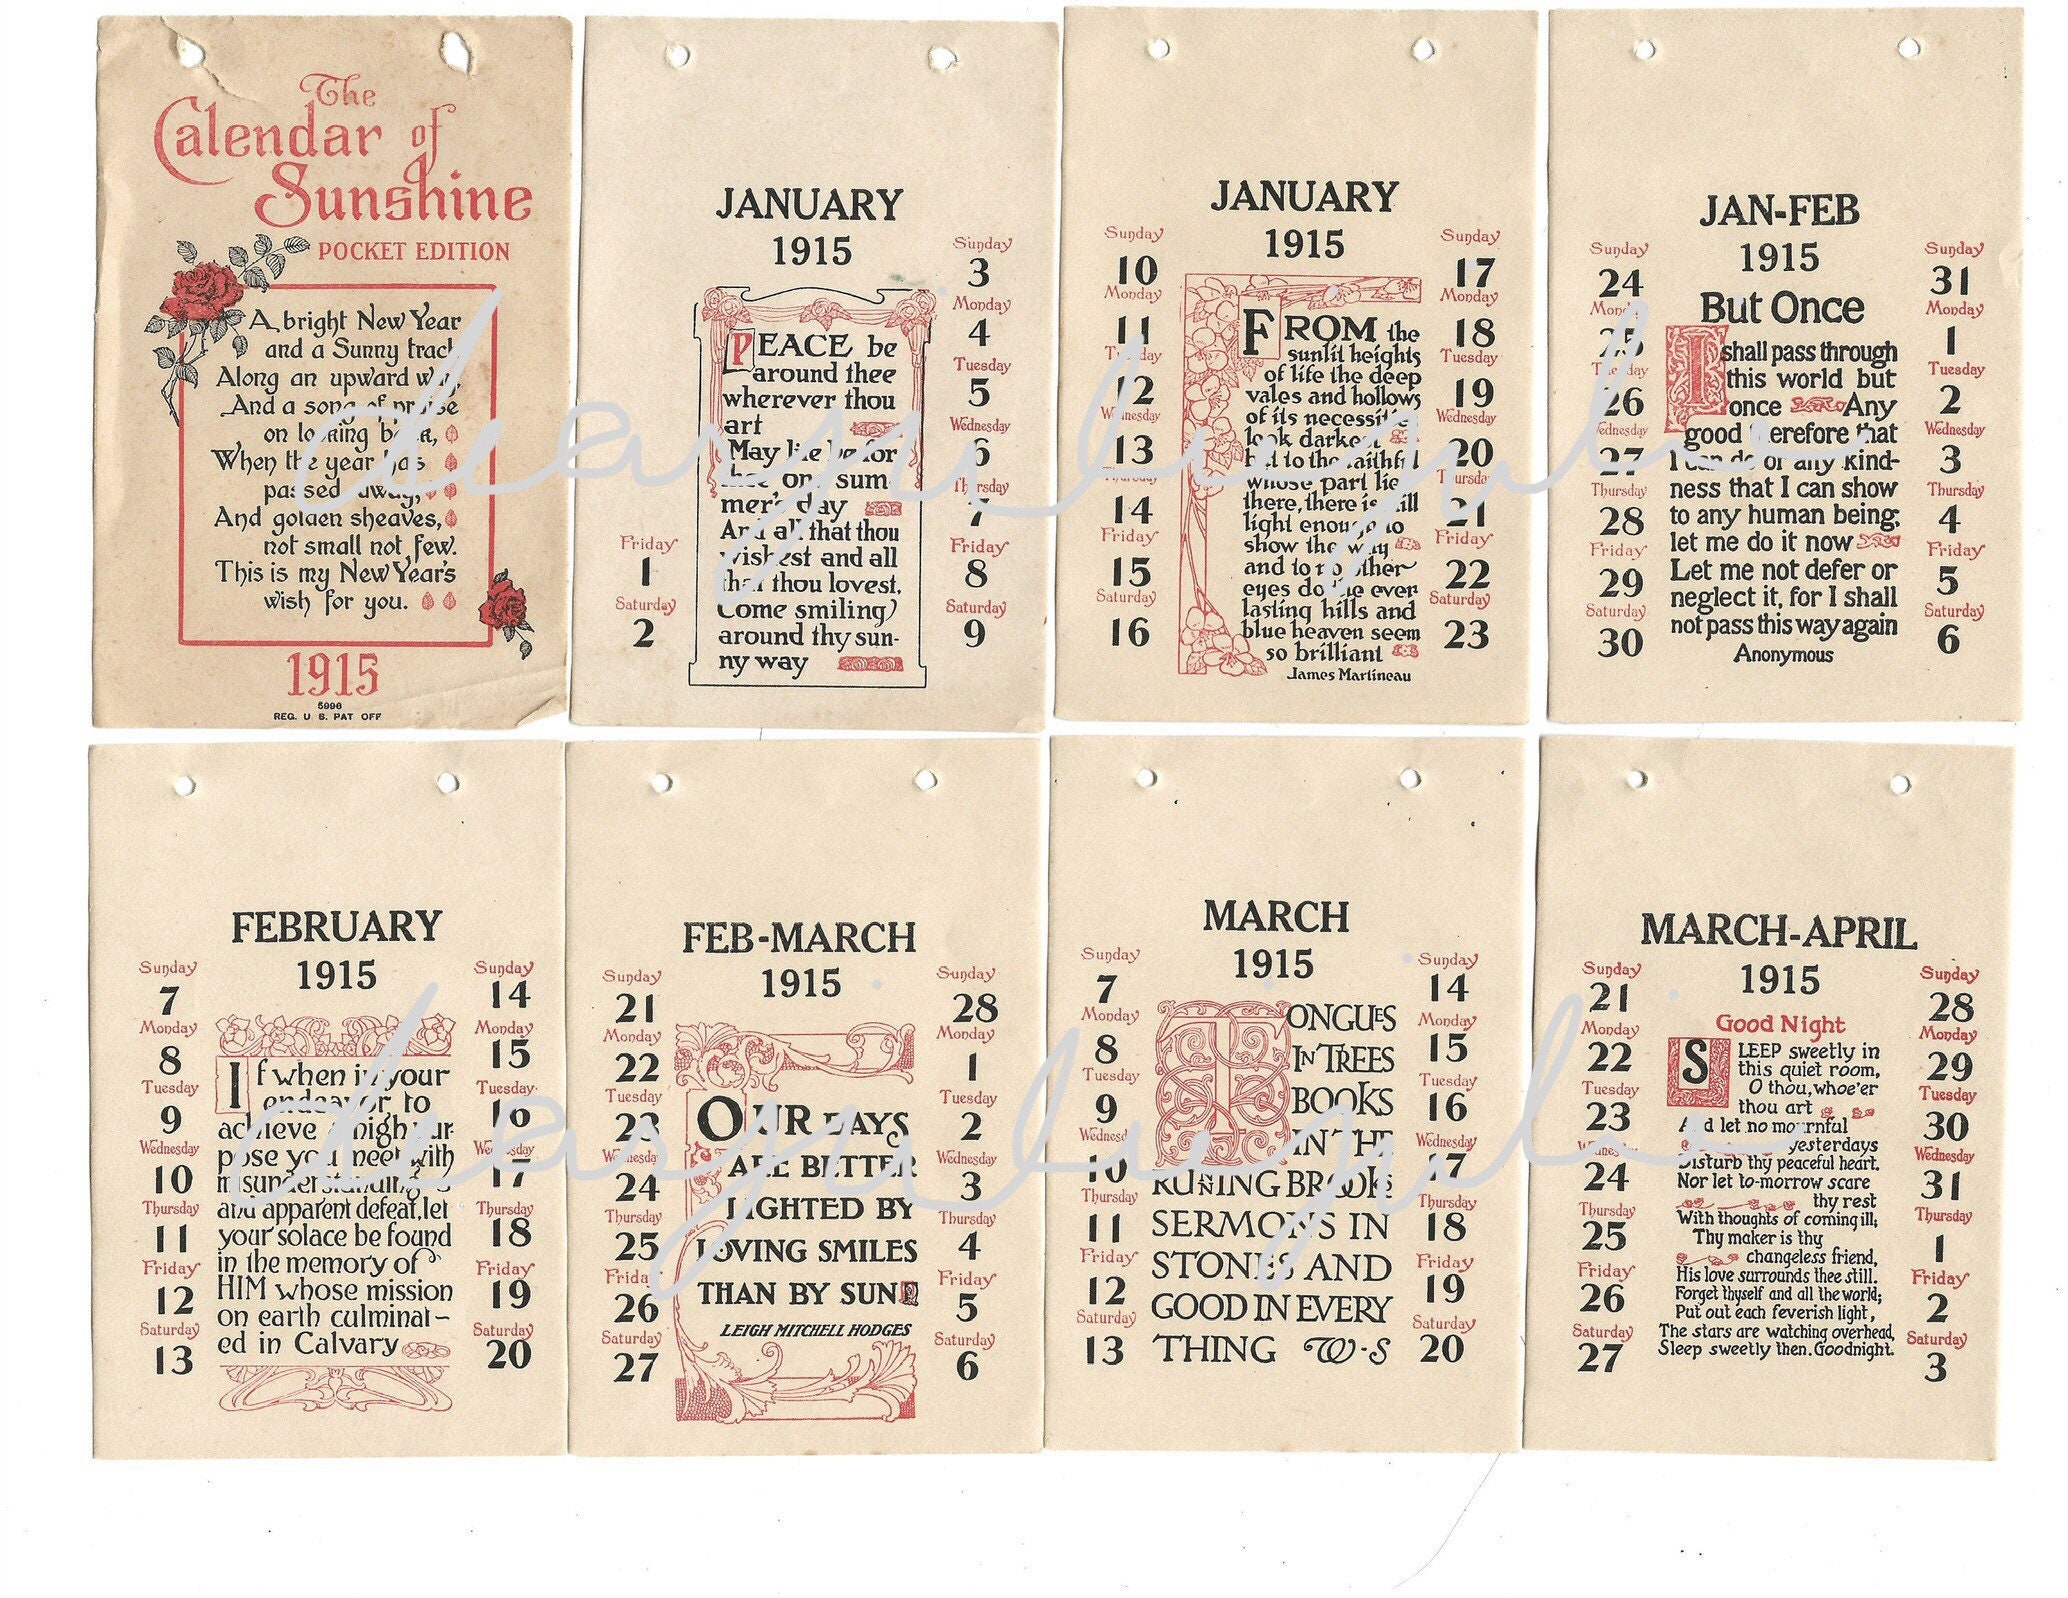 The
Calendar of
Sunshine
POCKET EDITION
A bright New Year
and a Sunny track
Along an upward way,
And a song of praise
on looking back,
When the year has
passed away,
And golden sheaves,
not small not few.
This is my New Year's
wish for you.
1915
5996
REG. U S. PAT OFF
JANUARY
1915
Friday
1
Saturday
2
PEACE be
around thee
wherever thou
art
May life be for
thee one sum-
mer's day
And all that thou
wishest and all
that thou lovest,
Come smiling
around thy sun-
ny way
Sunday
3
Monday
4
Tuesday
5
Wednesday
6
Thursday
7
Friday
8
Saturday
9
JANUARY
1915
Sunday
10
Monday
11
Tuesday
12
Wednesday
13
14
Friday
15
Saturday
16
FROM the
sunlit heights
of life the deep
vales and hollows
of its necessities
look darkest
but to the faithful
whose part lies
there, there is still
light enough to
show the way
and to no other
eyes do the ever
lasting hills and
blue heaven seem
so brilliant
James Martineau
Sunday
17
Monday
18
Tuesday
19
Wednesday
20
Thursday
21
Friday
22
Saturday
23
JAN-FEB
1915
Sunday
24
Monday
25
Tuesday
26
Wednesday
27
Thursday
28
Friday
29
Saturday
30
But Once
I shall pass through
this world but
once Any
good therefore that
I can do or any kind-
ness that I can show
to any human being;
let me do it now
Let me not defer or
neglect it, for I shall
not pass this way again
Anonymous
Sunday
31
Monday
1
Tuesday
2
Wednesday
3
Thursday
4
Friday
5
Saturday
6
FEBRUARY
1915
Sunday
7
Monday
8
Tuesday
9
Wednesday
10
Thursday
11
Friday
12
Saturday
13
If when in your
endeavor to
achieve a high pur-
pose you meet with
misunderstanding
and apparent defeat, let
your solace be found
in the memory of
HIM whose mission
on earth culminat-
ed in Calvary
Sunday
14
Monday
15
Tuesday
16
Wednesday
17
Thursday
18
Friday
19
Saturday
20
FEB-MARCH
1915
Sunday
21
Monday
22
Tuesday
23
Wednesday
24
Thursday
25
Friday
26
Saturday
27
OUR DAYS
ARE BETTER
LIGHTED BY
LOVING SMILES
THAN BY SUN
LEIGH MITCHELL HODGES
Sunday
28
Monday
1
Tuesday
2
Wednesday
3
Thursday
4
Friday
5
Saturday
6
MARCH
1915
Sunday
7
Monday
8
Tuesday
9
Wednesday
10
Thursday
11
Friday
12
Saturday
13
TONGUES
IN TREES
BOOKS
IN THE
RUNNING BROOKS
SERMONS IN
STONES AND
GOOD IN EVERY
THING W·S
Sunday
14
Monday
15
Tuesday
16
Wednesday
17
Thursday
18
Friday
19
Saturday
20
MARCH-APRIL
1915
Sunday
21
Monday
22
Tuesday
23
Wednesday
24
Thursday
25
Friday
26
Saturday
27
Good Night
SLEEP sweetly in
this quiet room,
O thou, whoe'er
thou art
And let no mournful
yesterdays
Disturb thy peaceful heart.
Nor let to-morrow scare
thy rest
With thoughts of coming ill;
Thy maker is thy
changeless friend,
His love surrounds thee still.
Forget thyself and all the world;
Put out each feverish light,
The stars are watching overhead,
Sleep sweetly then. Goodnight.
Sunday
28
Monday
29
Tuesday
30
Wednesday
31
Thursday
1
Friday
2
Saturday
3